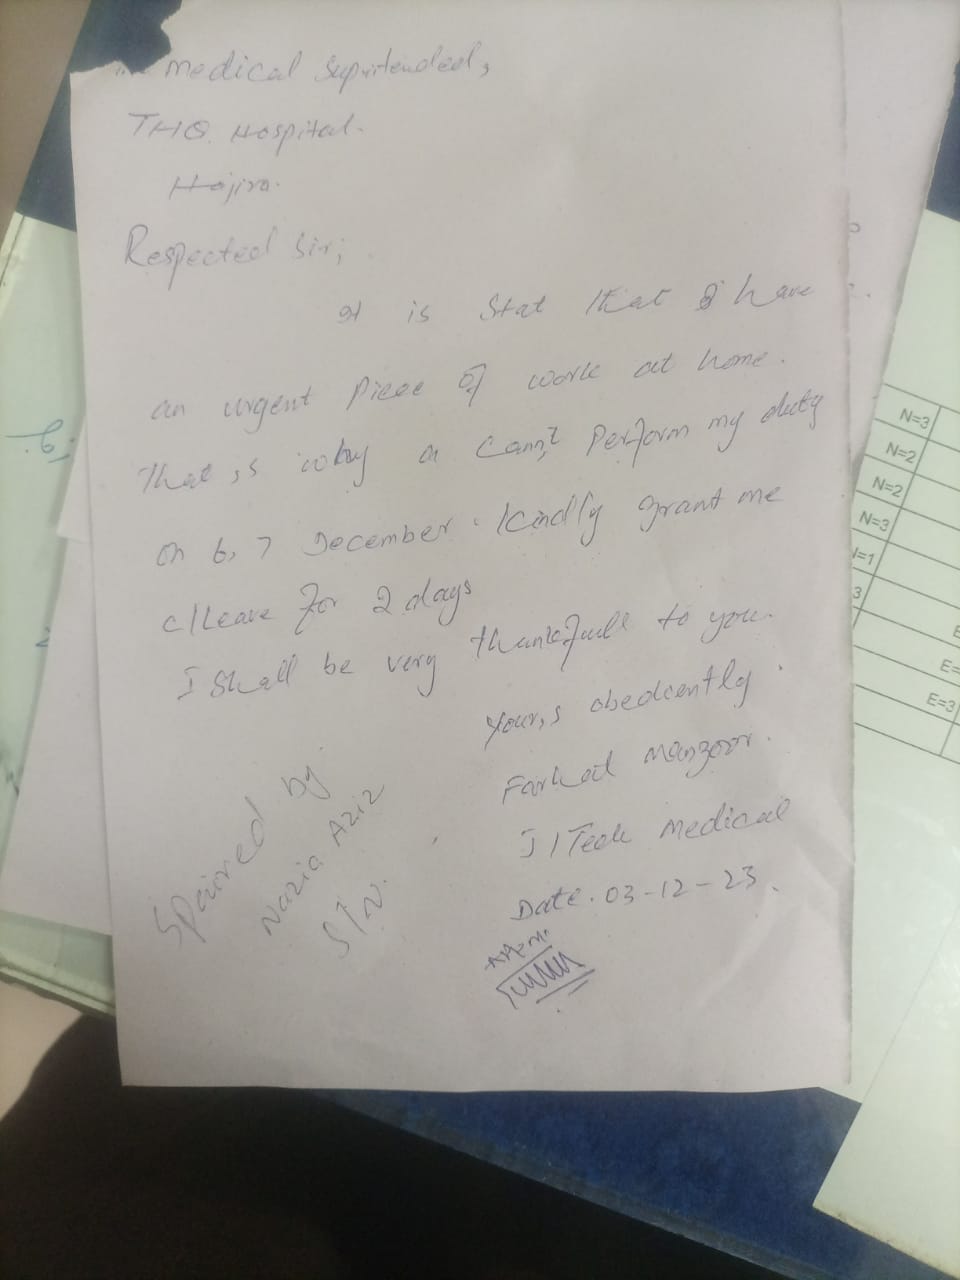 Medical Supritended,
THQ Hospital.
Hajira.
Respected Sir;
It is Stat that I have
an urgent Piece of work at home.
That,s why I Cann,t Perform my duty
on 6, 7 December. Kindly grant me
c/leave for 2 days
I Shall be very thankfull to you.
Your,s obediently
Farhat Manzoor.
J/Tech Medical
Date. 03-12-23.
Spaired by
Nazia Aziz
S/N.
N=3
N=2
N=2
N=3
N=1
3
E=
E=3